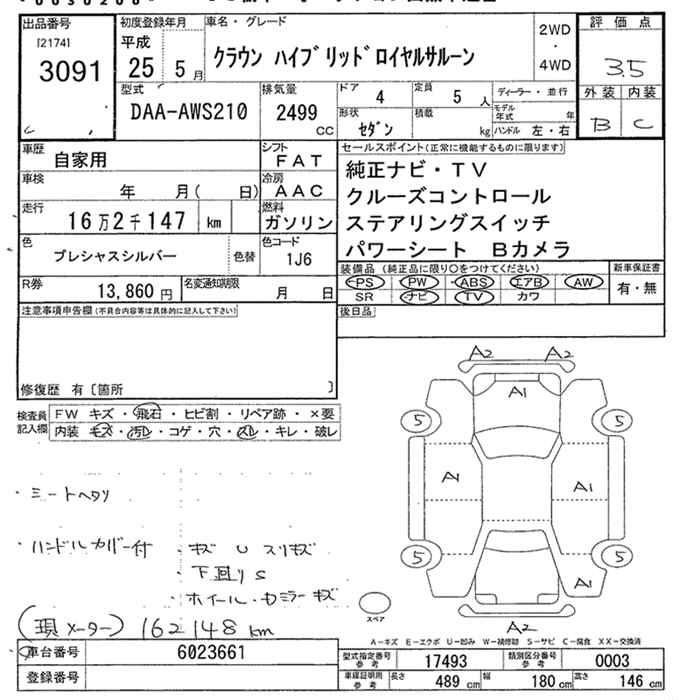 出品番号 [2174] 3091
初度登録年月 平成 25 5月
車名・グレード クラウン ハイブリッドロイヤルサルーン
2WD・4WD
評価点 3.5
外装 B 内装 C
型式 DAA-AWS210
排気量 2499 CC
ドア 4 定員 5 人
形状 セダン 積載 kg
ディーラー・並行
モデル年式 年
ハンドル 左・右
車歴 自家用
シフト FAT
車検 年 月( 日)
冷房 AAC
走行 16万2千147 km
燃料 ガソリン
色 プレシャスシルバー 色替
色コード 1J6
R券 13,860 円
名変通知期限 月 日
注意事項申告欄(不具合内容等は具体的に記入して下さい)
修復歴 有〔箇所 〕
セールスポイント(正常に機能するものに限ります)
純正ナビ・TV
クルーズコントロール
ステアリングスイッチ
パワーシート Bカメラ
装備品(純正品に限り○をつけてください)
PS PW ABS エアB AW
SR ナビ TV カワ
新車保証書 有・無
後日品
検査員記入欄
FW キズ・飛石・ヒビ割・リペア跡・×要
内装 モズ・汚れ・コゲ・穴・スレ・キレ・破レ
A2 A2
A1
5 5
A1 A1
5 5
A1
A2
スペア
・シートヘタリ
・ハンドルカバー付
・キズ U スリキズ
・下廻りS
・ホイール・ドミラーキズ
(現メーター) 162148km
A-キズ E-エクボ U-凹み W-補修跡 S-サビ C-腐食 XX-交換済
車台番号 6023661
登録番号
型式指定番号 参考 17493
類別区分番号 参考 0003
車庫証明用 参考 長さ 489 cm 幅 180 cm 高さ 146 cm